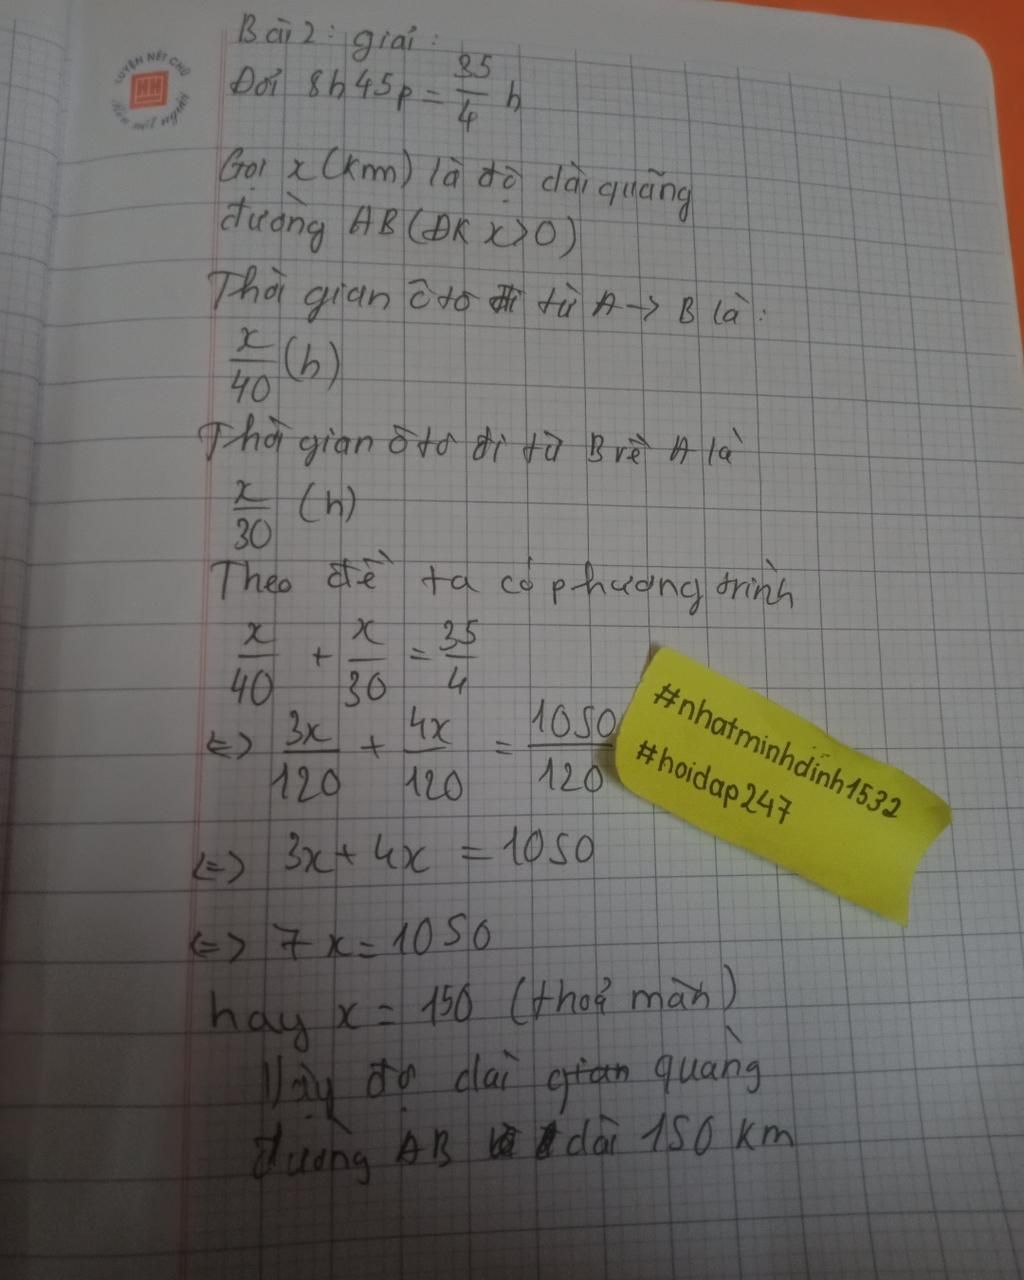 Bài 2: giải:
LUYỆN NÉT CHỮ
HN
Rèn nết người
Đổi 8h45p = 35/4 h
Gọi x (km) là độ dài quãng
đường AB (ĐK x>0)
Thời gian ô tô đi từ A → B là:
x/40 (h)
Thời gian ô tô đi từ B về A là
x/30 (h)
Theo đề ta có phương trình
x/40 + x/30 = 35/4
<=> 3x/120 + 4x/120 = 1050/120
#nhatminhdinh1532
#hoidap247
<=> 3x + 4x = 1050
<=> 7x = 1050
hay x = 150 (thoả mãn)
Vậy độ dài gian quãng
đường AB dài 150 km